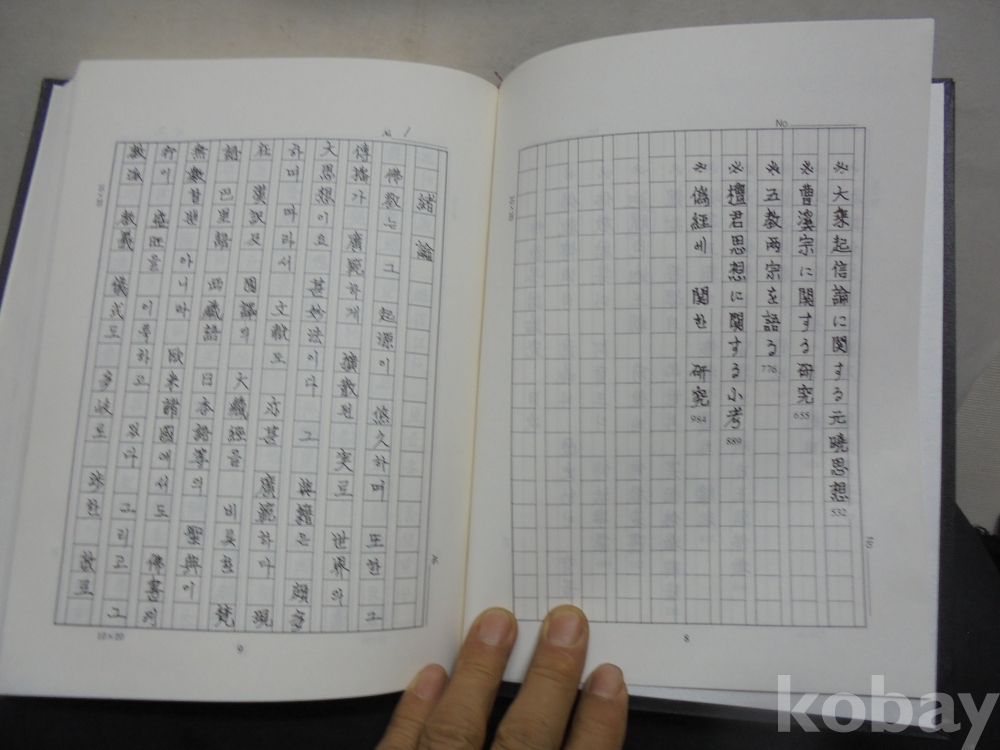 No
※ 大乘起信論に関する元曉思想 532
※ 曹溪宗に関する研究 655
※ 五教両宗を語る 776
※ 檀君思想に関する小考 889
※ 僞經에 関한 研究 984
No
10×20
8
No 1
緖論
佛教는 그 起源이 悠久하며 또한 그
傳播가 廣範하게 擴散된 実로 世界의
大思想이요 甚妙法이다 그 典籍은 頗多
하며 따라서 文献도 亦甚 廣範하다 現
在 漢訳及 国譯의 大藏經을 비롯한 梵
語 巴里語 西藏語 日本語等의 聖典이
無數할뿐 아니라 欧米諸國에서도 佛書의
行이 盛旺을 이룩하고 있다 그리고 그
教派 教義 儀式도 多岐로 殊한 教로
10×20
10×20
9
kobay